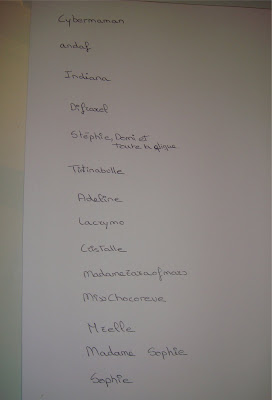 Cybermaman
andaf
Indiana
Stéphie, Demi et
toute la clique
Titinabelle
Adeline
Lacrymo
Cristalle
Madamezazaofmars
MissChocoreve
Mzelle
Madame Sophie
Sophie